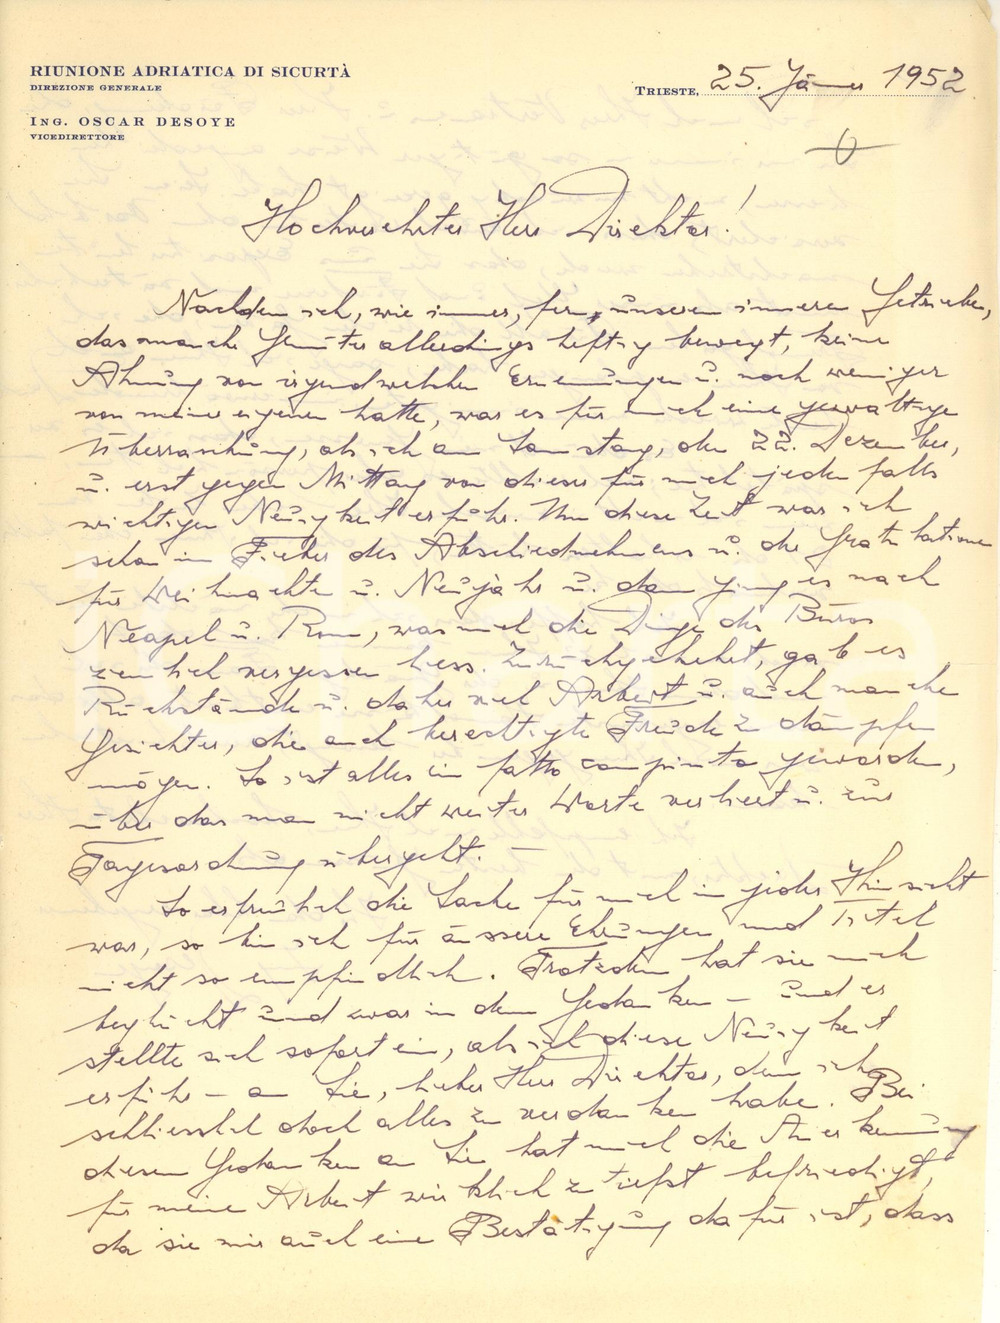 RIUNIONE ADRIATICA DI SICURTÀ
DIREZIONE GENERALE
ING. OSCAR DESOYE
VICEDIRETTORE
TRIESTE, 25. Jänner 1952
Hochverehrter Herr Direktor!
Nachdem ich, wie immer, fern unserem inneren Getriebe,
das manche Gemüter allerdings heftig bewegt, keine
Ahnung von irgendwelchen Ernennungen u. noch weniger
von meiner eigenen hatte, war es für mich eine gewaltige
Überraschung, als ich am Samstag, den 22. Dezember,
u. erst gegen Mittag von dieser für mich jedenfalls
wichtigen Neuigkeit erfuhr. Um diese Zeit war ich
schon im Fieber des Abschiednehmens u. der Gratulationen
für Weihnachten u. Neujahr u. dann ging es nach
Neapel u. Rom, was mich die Dinge des Büros
ziemlich vergessen liess. Zurückgekehrt, gab es
Rückstände u. daher viel Arbeit u. auch manche
Gesichter, die auch berechtigte Freude zu dämpfen
mögen. So ist alles ein fatto compiuto geworden,
über das man nicht weiter Worte verliert u. zur
Tagesordnung übergeht. —
So erfreulich die Sache für mich in jeder Hinsicht
war, so bin ich für äussere Ehrungen und Titel
nicht so empfindlich. Trotzdem hat sie mich
beglückt und zwar in dem Gedanken — und er
stellte sich sofort ein, als ich diese Neuigkeit
erfuhr — an Sie, lieber Herr Direktor, dem ich
schliesslich doch alles zu verdanken habe. Bei
diesem Gedanken an Sie hat mich die Anerkennung
für meine Arbeit wirklich zutiefst befriedigt,
da sie mir auch eine Bestätigung dafür ist, dass